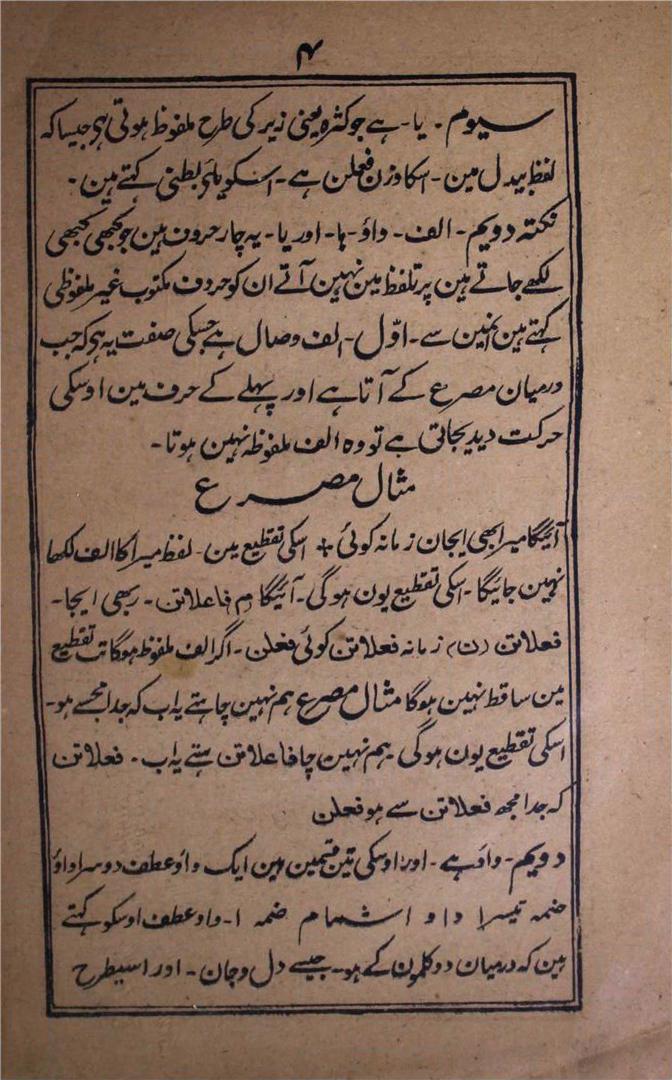 ۴
سیوم۔ یا۔ ہے جو کثرہ یعنی زیر کی طرح ملفوظ ہوتی ہی جیسا کہ
لفظ بیدل مین۔ اسکا وزن فعلن ہے۔ اسکو یائے بطنی کہتے ہین۔
نکتہ دویم۔ الف۔ واؤ۔ ہا۔ اور یا۔ یہ چار حروف ہین جو کبھی کبھی
لکھے جاتے ہین پر تلفظ مین نہین آتے ان کو حروف مکتوب غیر ملفوظی
کہتے ہین انمین سے۔ اوّل۔ الف وصال ہے جسکی صفت یہ ہی کہ جب
درمیان مصرع کے آتا ہے اور پہلے کے حرف مین اوسکی
حرکت دیدیجاتی ہے تو وہ الف ملفوظہ نہین ہوتا۔
مثال مصرع
آئیگا میرا بھی ایجان زمانہ کوئی + اسکی تقطیع مین۔ لفظ میرا کا الف لکھا
نہین جائیگا۔ اسکی تقطیع یون ہوگی۔ آئیگا مِ فاعلاتن۔ ربھی ایجا۔
فعلاتن (ن) زمانہ فعلاتن کوئی فعلن۔ اگر الف ملفوظ ہوگا تب تقطیع
مین ساقط نہین ہوگا مثال مصرع ہم نہین چاہتے یہ اب کہ جدا مجسے ہو۔
اسکی تقطیع یون ہوگی۔ ہم نہین چا فاعلاتن ہتے یہ اب۔ فعلاتن
کہ جدا مجھ فعلاتن سے ہو فعلن
دویم۔ واؤ ہے۔ اور اوسکی تین قسمین ہین ایک واؤ عطف دوسرا واؤ
ضمہ تیسرا واو اشمام ضمہ ا۔ واو عطف اوسکو کہتے
ہین کہ درمیان دو کلمون کے ہو۔ جیسے دل و جان۔ اور اسیطرح